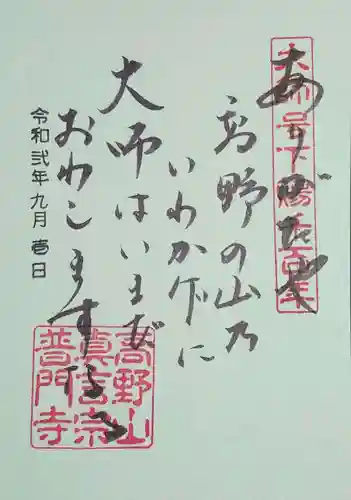 ありがたや
高野の山乃
いわかげに
大師はいまだ
おわします
令和弐年九月壱日
高野山
真言宗
普門寺